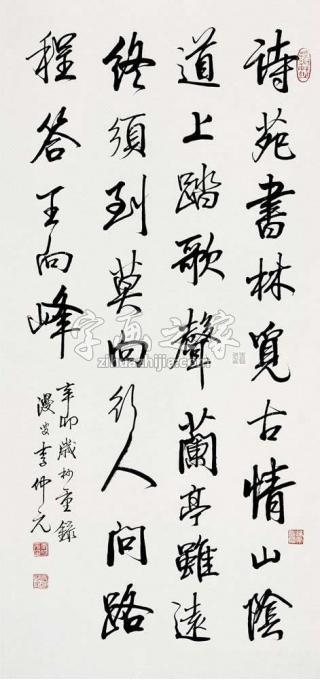 诗苑書林覓古情山陰
道上踏歌聲蘭亭雖遠
終須到莫向行人問路
程答王向峰
辛卯歲杪重錄
漫叟李仲元
字画之家
zihuazhijia.com